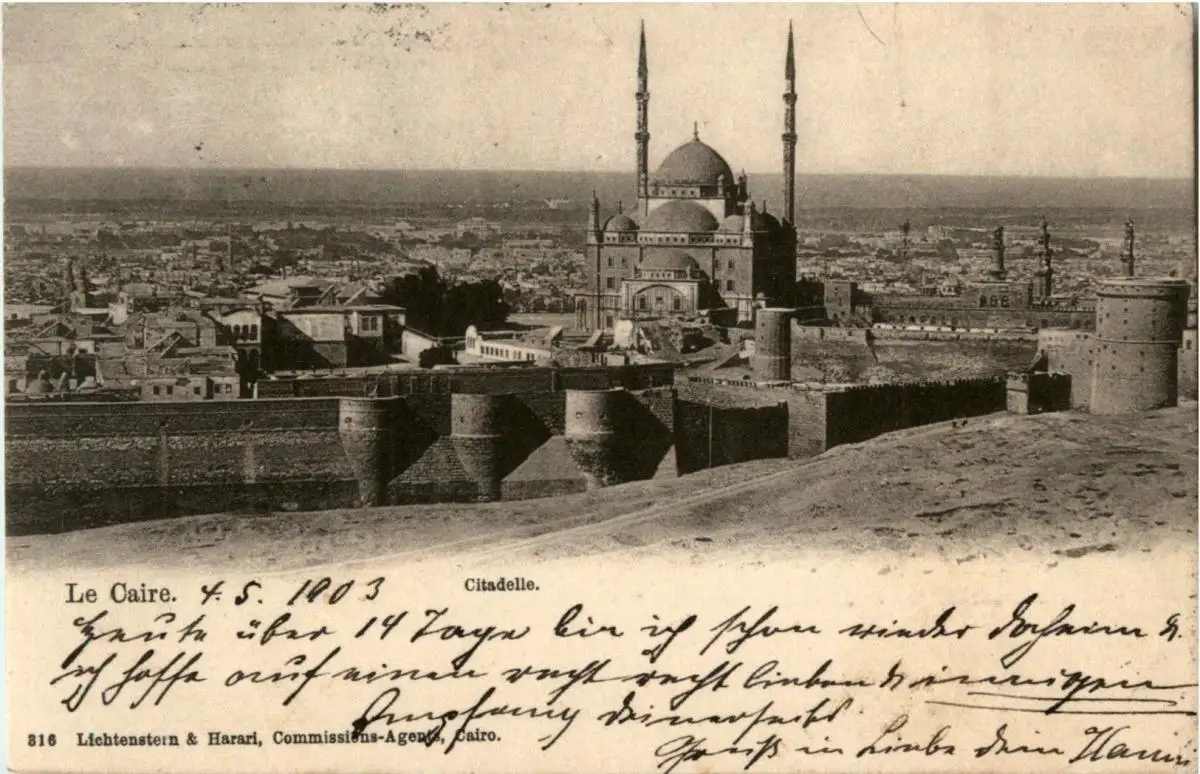 Le Caire. 4. 5. 1903 Citadelle.
Heute über 14 Tage bin ich schon wieder daheim &
ich hoffe auf einen recht recht lieben & innigen
Empfang deinerseits.
316 Lichtenstern & Harari, Commissions-Agents, Cairo.
Gruß in Liebe dein